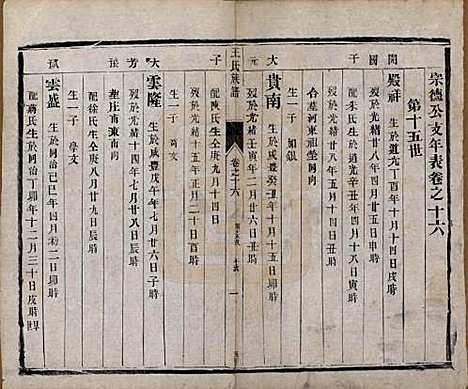 宗德公支年表卷之十六
第十五世
閏國子
殿祥 生於道光丁酉年十月十四日戌時
歿於光緒廿八年四月廿五日申時
配朱氏生於道光辛丑年四月廿八日寅時
歿於光緒廿八年十月十八日
合墓河東祖塋河南
生一子 如銀
大元子
貴南 生於咸豐癸丑年十月十五日卯時
歿於光緒壬寅年二月六日
配陳氏生
王氏族譜
卷之十六
一
仝庚九月十四日
歿於光緒十五年正月二十日酉時
生一子 尚文
大芳
雲隆 生於咸豐戊午年七月廿六日子時
歿於光緒十四年七月廿八日辰時
配徐氏生仝庚八月廿九日辰時
墓莊前東南向
生一子 學文
雲盛 生於同治己巳年四月初二日卯時
配蔣氏生於同治丁卯年十二月三十日戌時